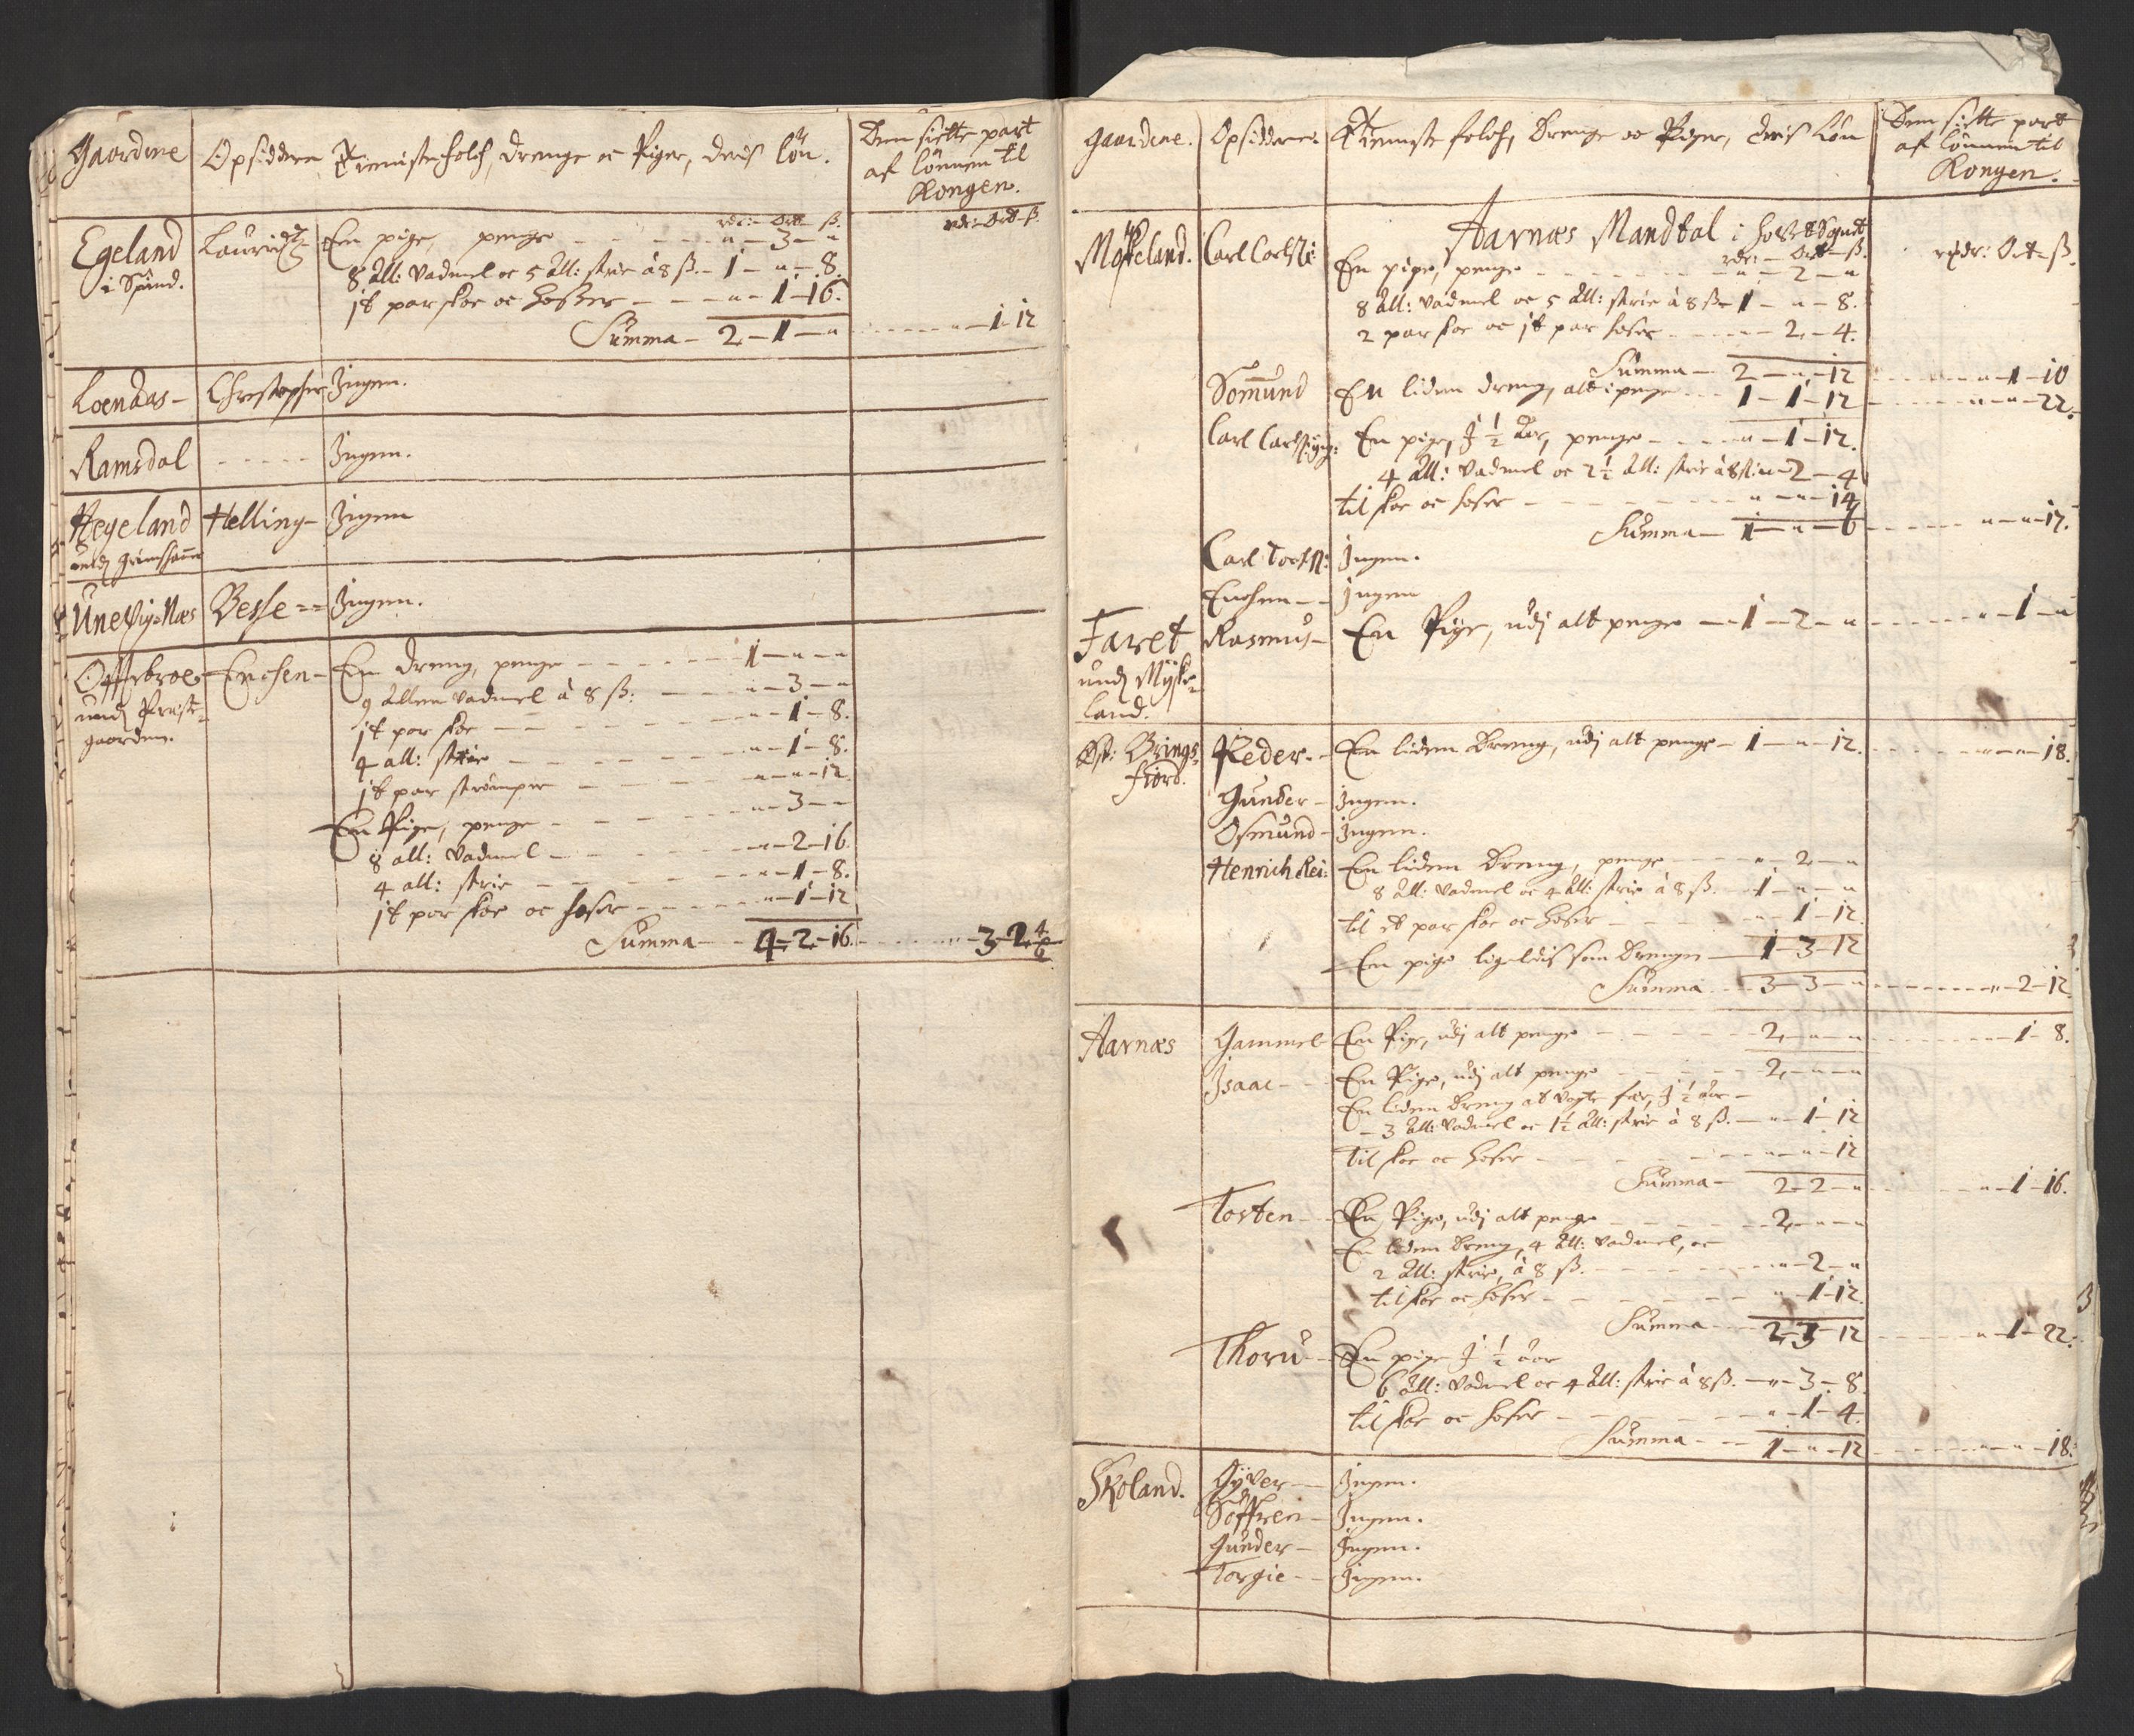 Gaardene Opsiddere Tienniste folch, drenge oc Piger, deris lön. Den siette part
af lönnen til
Kongen.
rdr: – Ort – ß. rdr: – Ort – ß.
Egeland Lauridtz En pige, penge – – – – " – 3 – "
i Spind. 8 All: Vadmel oc 5 All: strie à 8 ß. – 1 – " – 8.
1t par skoe oc hoßer – – – " – 1 – 16.
Summa – 2 – 1 – " – – – – " – 1 – 12
Loendaas – Christopher Ingen.
Ramsdal – – – – – Ingen.
Hegeland Helling – Ingen
Une Vig Næs Besse = = Ingen.
Offebroe Erichsen – En dreng, penge – – – – – – 1 – " – "
und Præste- 9 Allen Vadmel à 8 ß: – – – " – 3 – "
gaarden. 1t par skoe – – " – 1 – 8.
4 all: strie – – – – " – 1 – 8.
1t par strömper – – – – " – " – 12
En Pige, penge – – – – – " – 3 – "
8 all: Vadmel – – – – – " – 2 – 16.
4 all: strie – – – – – " – 1 – 8.
1t par skoe oc hoser – – – – " – 1 – 12
Summa – – 4 – 2 – 16. – – – – " – 3 – 2 4/6
Gaardene. Opsiddere. Tienniste folch, Drenge oc Piger, deris Lön Den siette part
af lönnen til
Kongen.
Aarnæs Mandtal i
rdr: – Ort – ß. rixdr: Ort – ß.
Møskeland. Carl Carls: En pige, penge – – – – – " – 2 – "
8 All: Vadmel oc 5 All: strie à 8 ß – 1 – " – 8.
2 par skoe oc 1t par hoser – – – – 2 – 4.
Summa – 2 – " – 12 – – – – " – 1 – 10
Somund En liden dreng, alt i penge – – 1 – 1 – 12 – – – – " – " – 22.
Carl Carls: yng: En pige, I ½ Aar, penge – – – – " – 1 – 12.
4 All: Vadmel oc 2½ All: strie à 8 ß: " – 2 – 4
til skoe oc hoser – – – – – " – " – 14
Summa – 1 – " – 6 – – – – " – " – 17.
Carl Torß: Ingen.
Erichen – – Ingen
Faret Rasmus – En Pige, udj alt penge – 1 – 2 – " – – – – – " – 1 – "
und Myske-
land.
Øst: Brings- Peder – – En liden Dreng, udj alt penge – 1 – " – 12. – – – – " – " – 18.
fiord. Gunder – Ingen.
Osmund – Ingen.
Henrich Rei: En liden Dreng, penge – – – " – 2 – "
8 All: Vadmel oc 4 All: strie à 8 ß. – 1 – " – "
til et par skoe oc hoser – – – " – 1 – 12.
En pige ligeledis som Drengen – 1 – 3 – 12
Summa – – 3 – 3 – " – – – – – " – 2 – 12.
Aarnæs Gammel En Pige, udj alt penge – – – – 2 – " – " – – – – – 1 – 8.
Isaac – – En Pige, udj alt penge – – – – 2 – " – "
En liden Dreng at vogte fær, I ½ Aar –
– 3 All: Vadmel oc 1½ All: strie à 8 ß. – " – 1 – 12
til skoe oc hoser – – – – – " – " – 12
Summa – 2 – 2 – " – – – – " – 1 – 16.
Torsten – – En Pige, udj alt penge – – – – 2 – " – "
En liden Dreng, 4 All: Vadmel, oc
2 All: strie, à 8 ß. – – – – – " – 2 – "
til skoe oc hoser – – – – – " – 1 – 12.
Summa – – 2 – 3 – 12 – – – – " – 1 – 22.
Thoru – – En pige I ½ Aar
6 All: Vadmel oc 4 All: strie à 8 ß. – " – 3 – 8.
til skoe oc hoser – – – – " – 1 – 4.
Summa – – 1 – " – 12 – – – – " – " – 18.
Skoland. Gyver – Ingen.
Söffren – Ingen.
Gunder – Ingen.
Torgie – – Ingen.